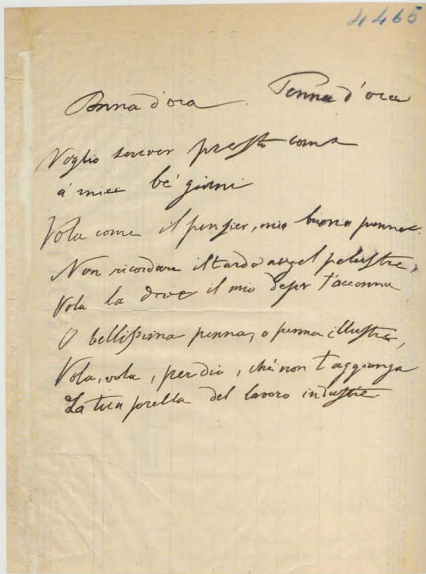 4465
Penna d'ora. Penna d'ora
Voglio scriver presto come
a' miei be' giorni
Vola come il pensier, mia buona penna
Non ricordare il tardo augel palustre,
Vola la dove il mio desir t'accenna
O bellissima penna, o penna illustre,
Vola, vola, per dio, che non t'aggiunga
La tua sorella del lavoro industre